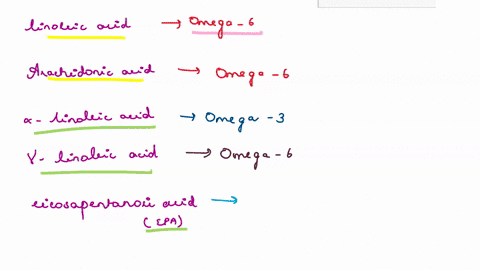 linoleic acid → Omega - 6
Arachidonic acid → Omega - 6
α - linoleic acid → Omega - 3
γ - linoleic acid → Omega - 6
eicosapentanoic acid →
(EPA)